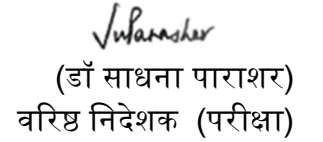 (डॉ साधना पाराशर)
वरिष्ठ निदेशक (परीक्षा)